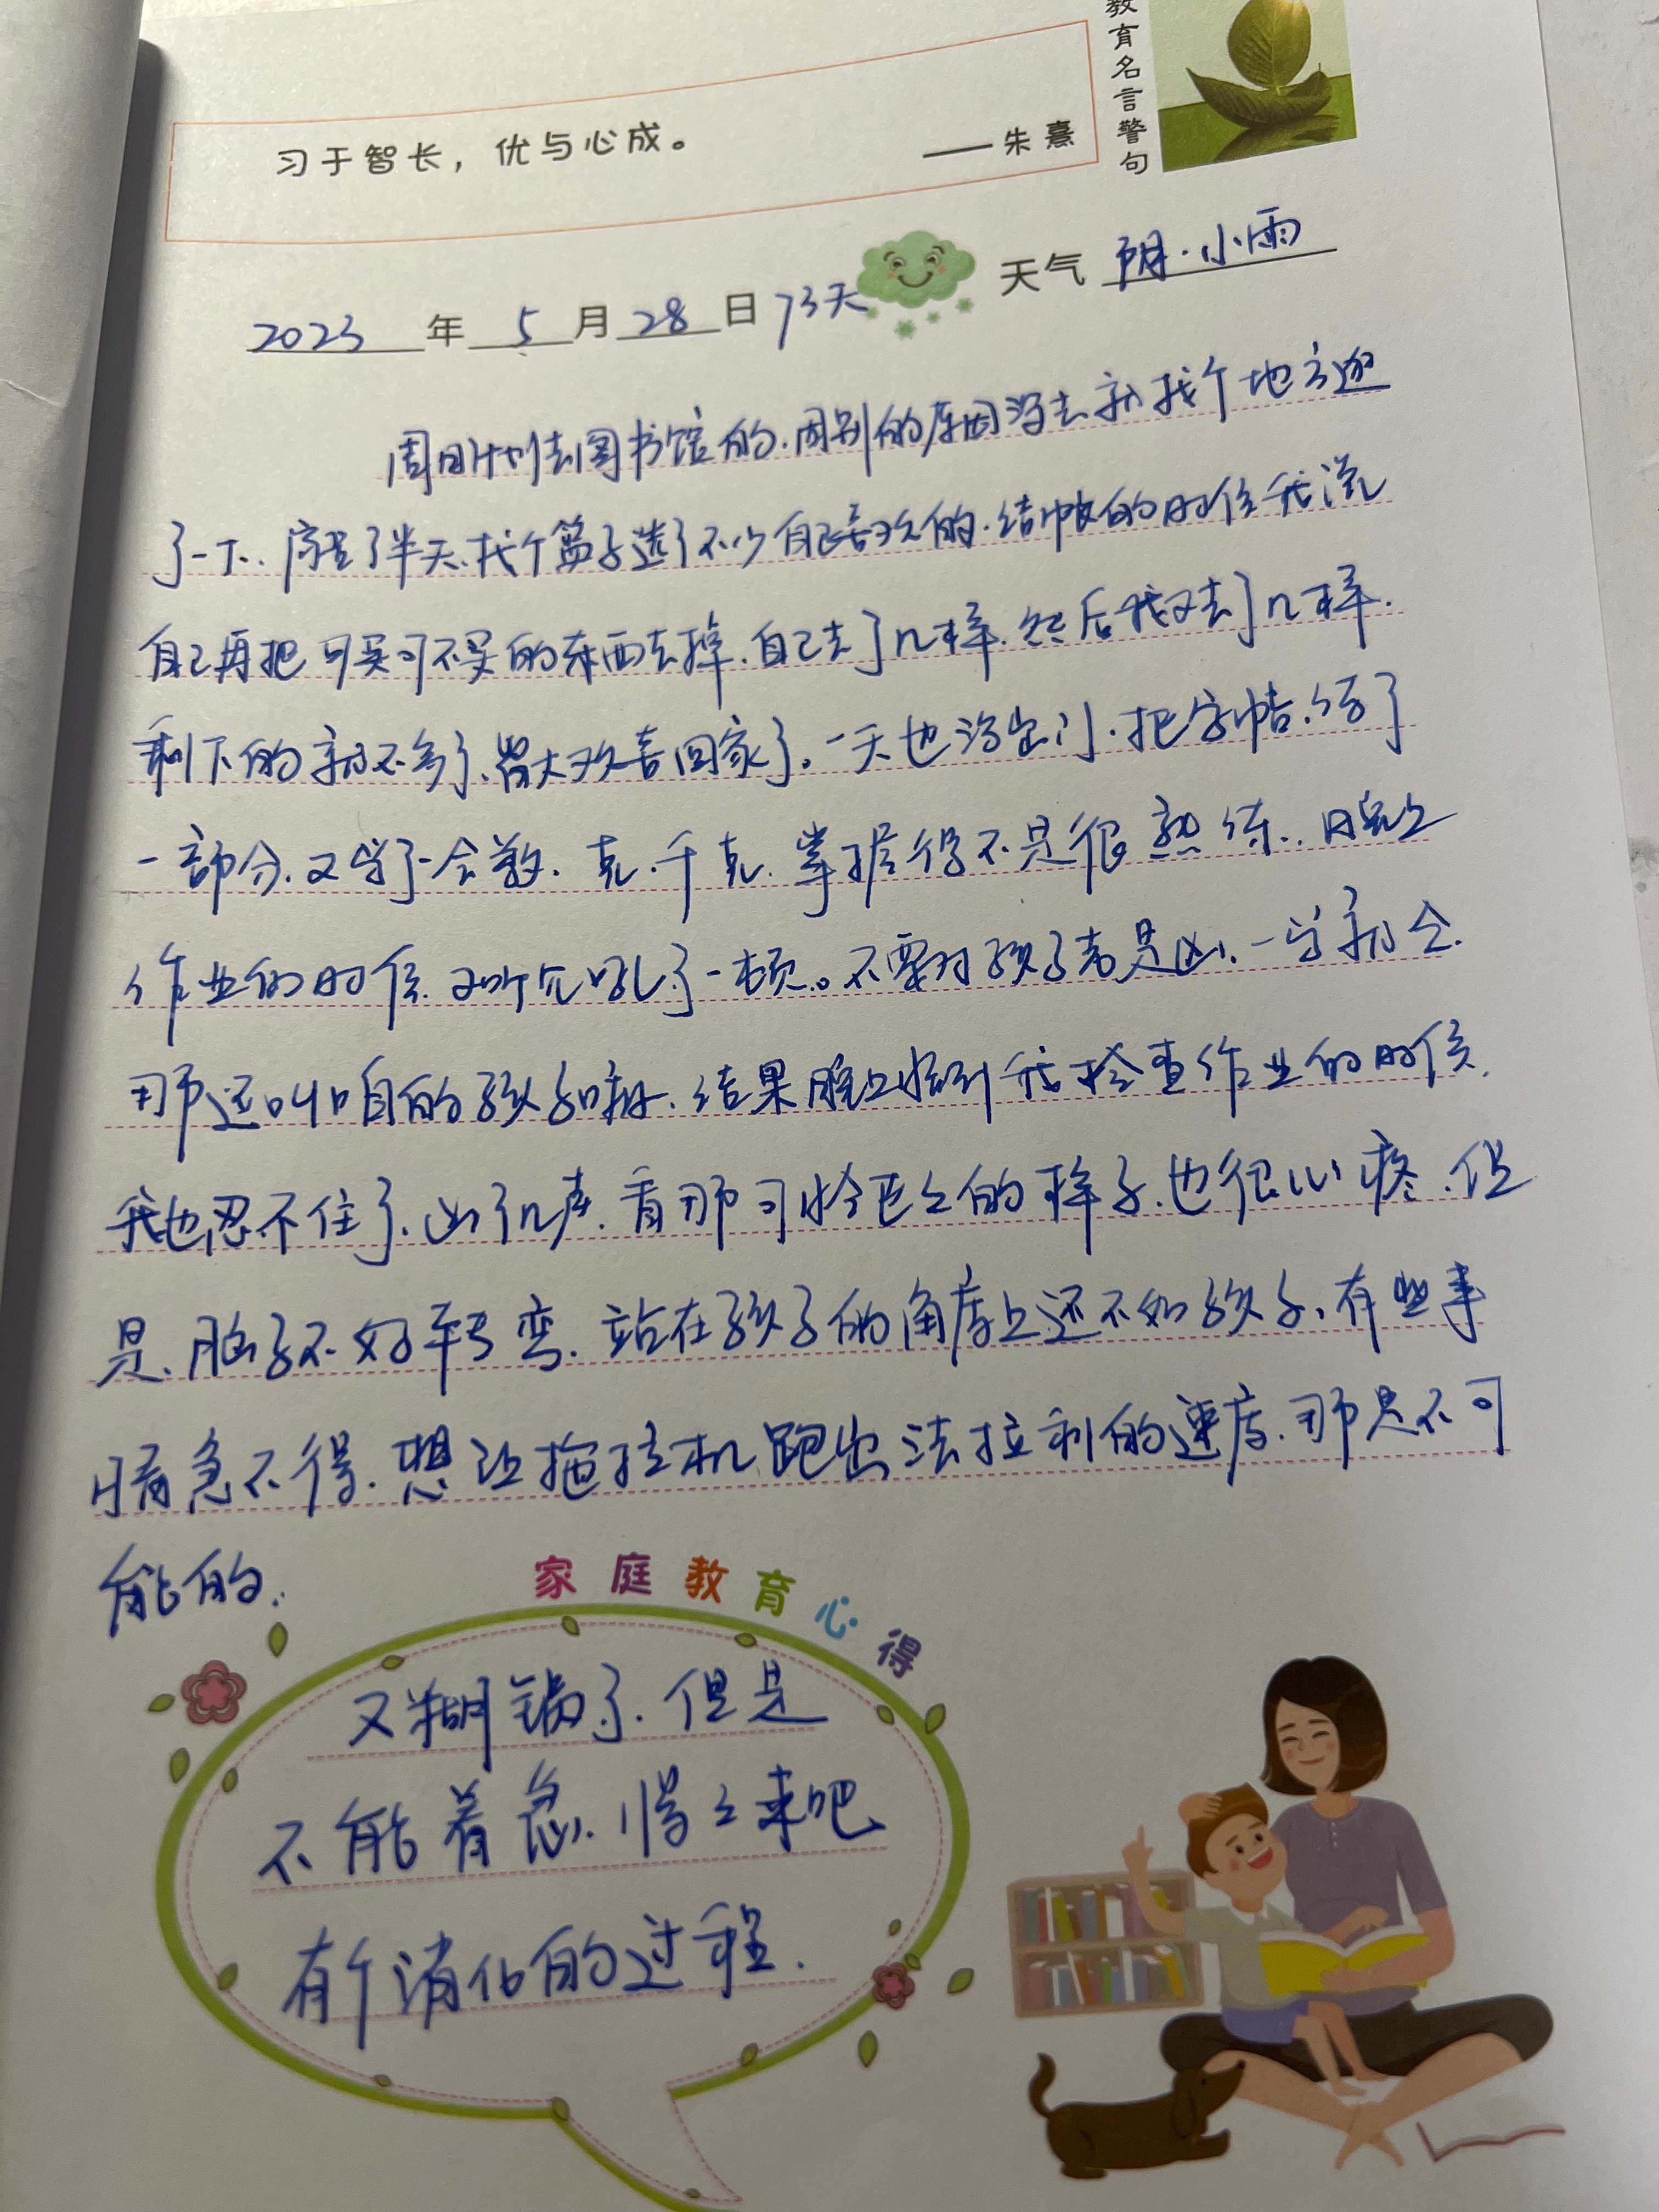 教育名言警句
习于智长，优与心成。
——朱熹
2023年5月28日73天 天气 阴·小雨
周日计划去图书馆的.因别的原因没去就找个地方逛
了一下.逛了半天.找个篮子选了不少自己喜欢的.结帐的时候我说
自己再把可买可不买的东西去掉.自己去了几样.然后我又去了几样.
剩下的就不多了.皆大欢喜回家了.一天也没出门.把字帖.练了
一部分.又学了一会数.克.千克.掌握得不是很熟练.晚上
作业的时候.又吼了一顿。不要对孩子老是凶.一学就会.
那还叫咱的孩子嘛.结果晚上轮到我检查作业的时候.
我也忍不住了.凶了几声.看那可怜巴巴的样子.也很心疼.但
是.脑子不好转弯.站在孩子的角度上还不如孩子.有些事
情急不得.想让拖拉机跑出法拉利的速度.那是不可
能的.
家庭教育心得
又糊锅了.但是
不能着急.慢慢来吧
有个消化的过程.